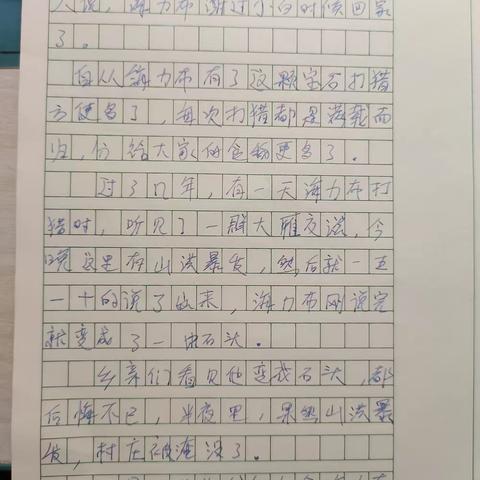 人说，海力布谢过小白蛇候回家
了。
自从海力布有了这颗宝石打猎
方便多了，每次打猎都是满载而
归，分给大家的食物更多了。
过了几年，有一天海力布打
猎时，听见了一群大雁交流，今
晚这里有山洪暴发，然后就一五
一十的说了出来，海力布刚说完
就变成了一块石头。
乡亲们看见他变成石头，都
后悔不已，半夜里，果然山洪暴
发，村庄被淹没了。